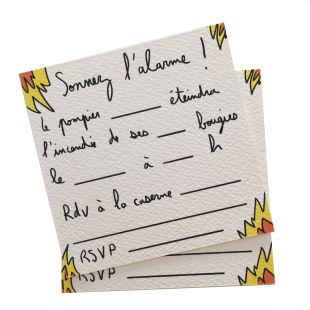 Sonnez l'alarme !
le pompier ______ éteindra
l'incendie de ses ___ bougies
le ______ à ____ h
Rdv à la caserne ________
________________
RSVP ____________
RSVP ____________